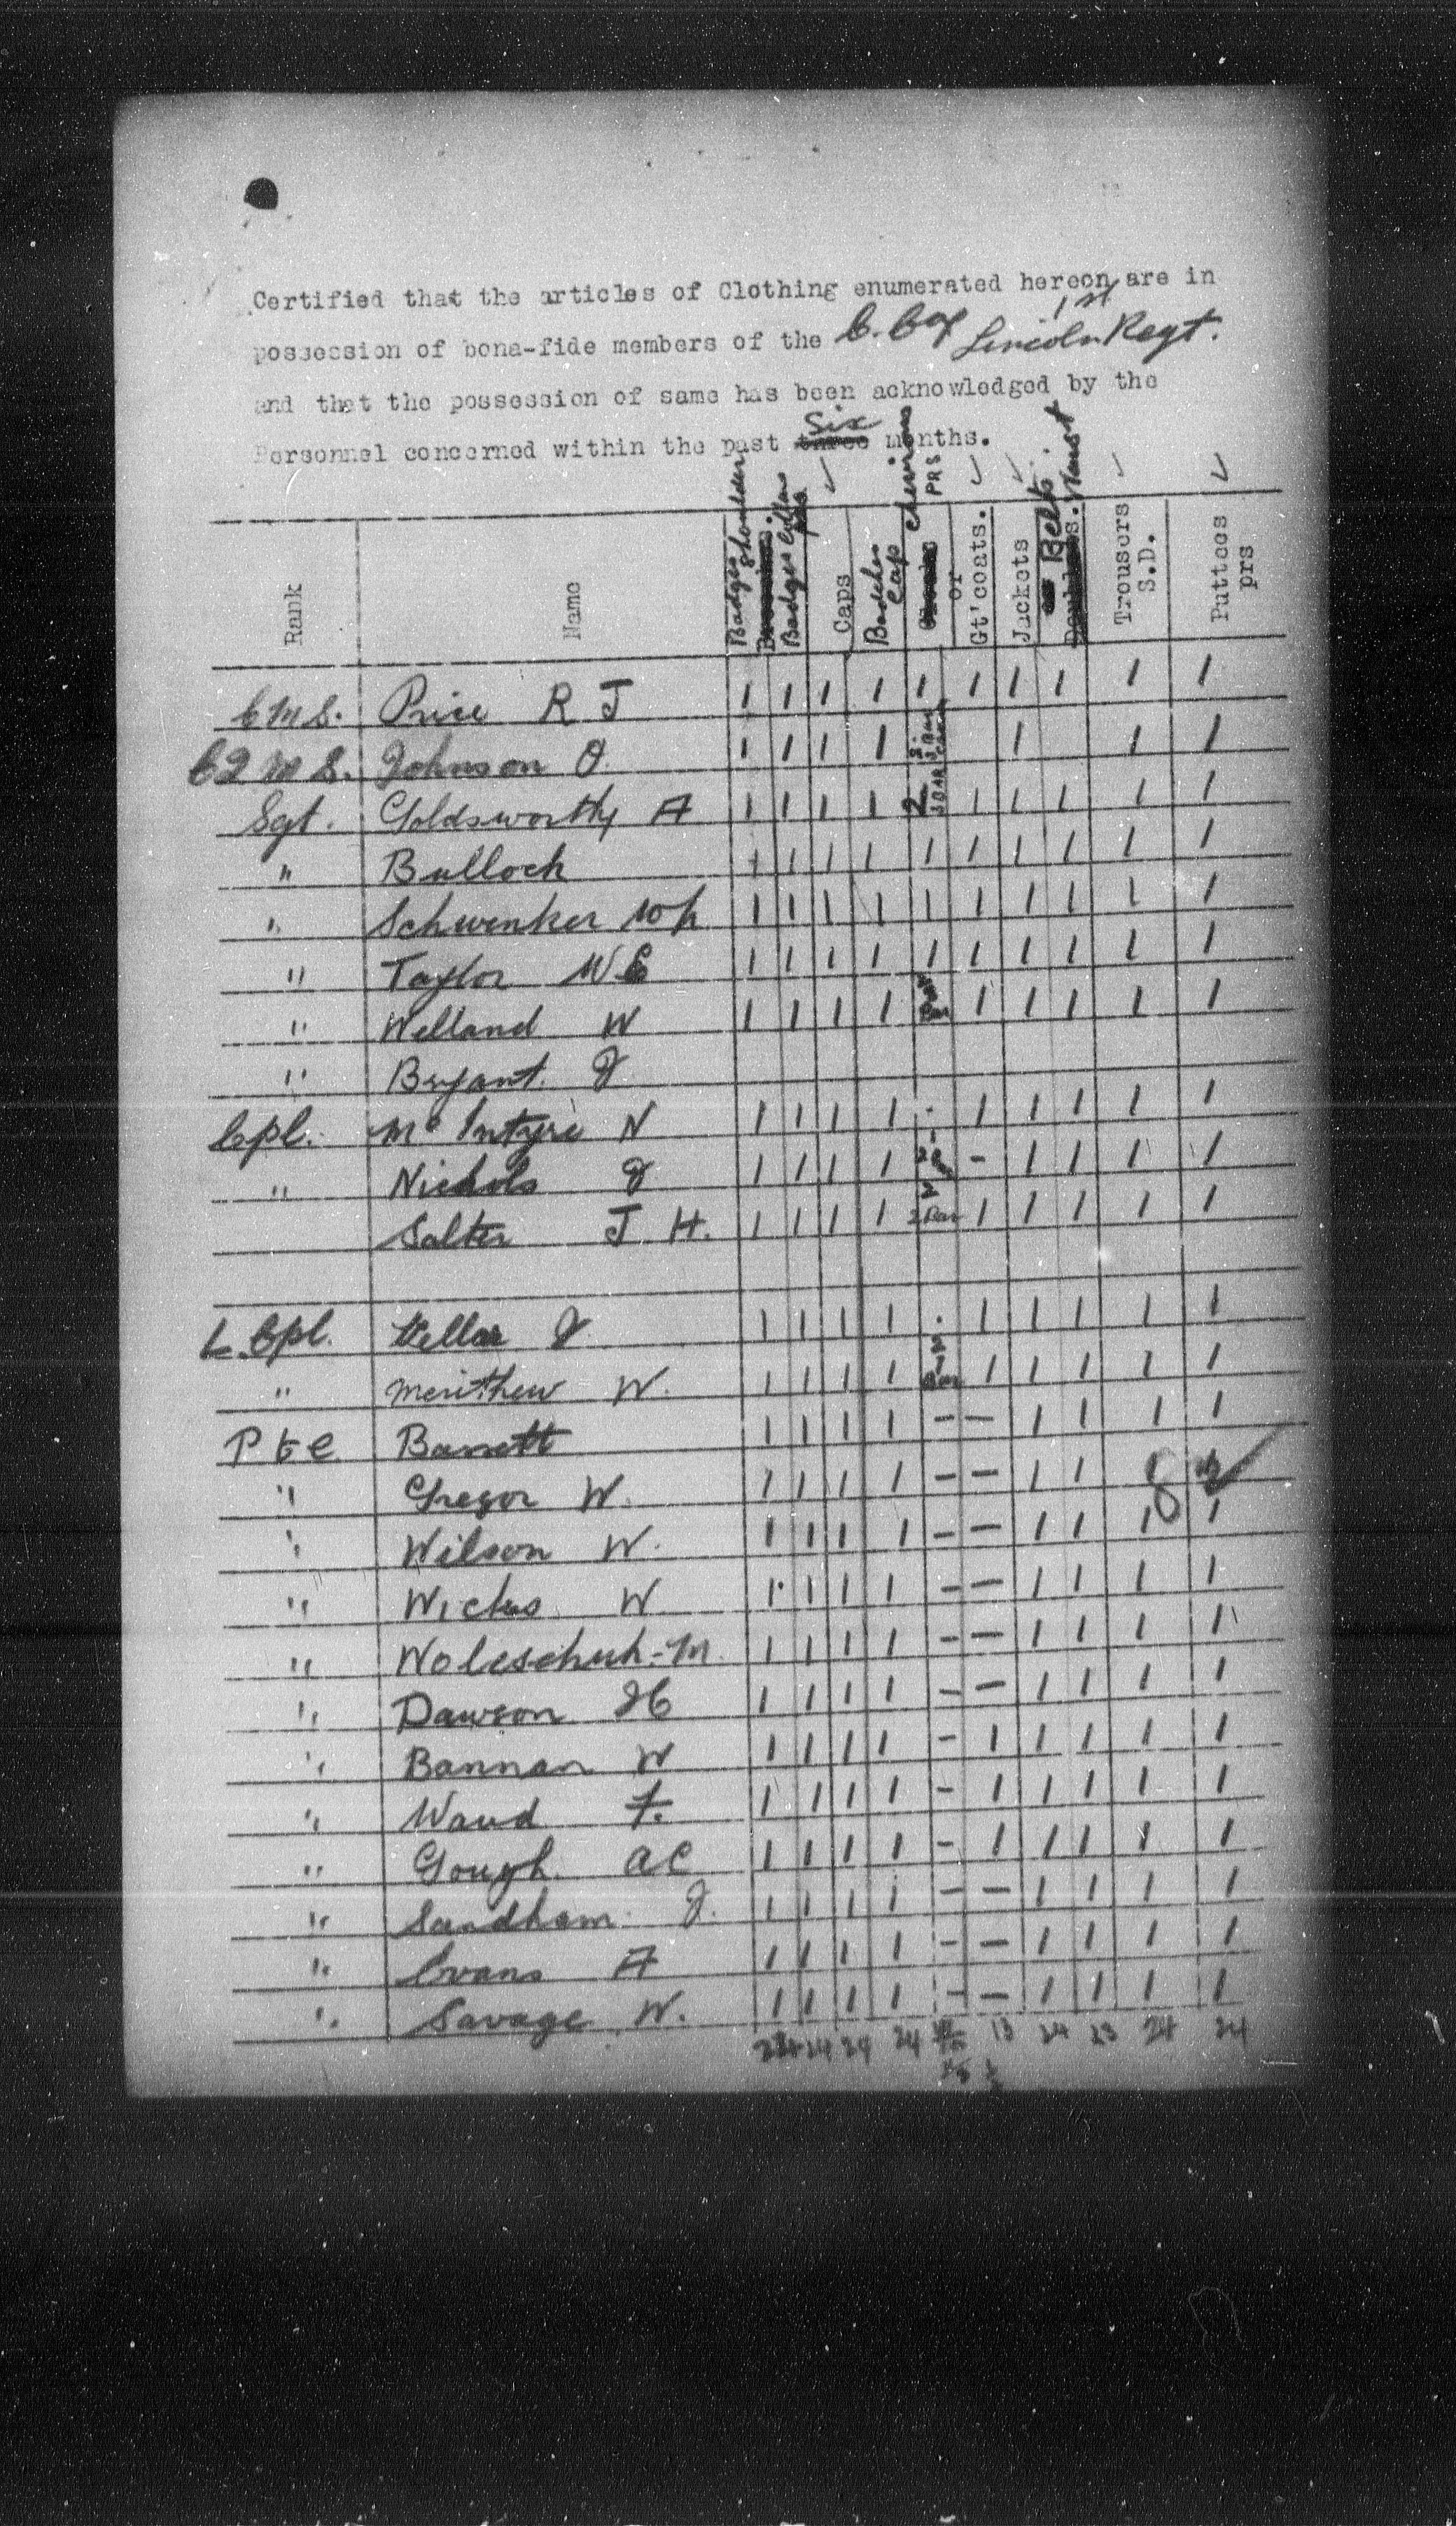 Certified that the articles of Clothing enumerated hereon are in
possession of bona-fide members of the C. Coy 1st Lincoln Regt.
and that the possession of same has been acknowledged by the
Personnel concerned within the past three Six months.
Rank Name Badges shoulder Badges Collar prs Caps Badches Cap Chevrons PRS or Gt'coats. Jackets Belts. Waist Trousers S.D. Puttees prs
C M S. Price R J 1 1 1 1 1 1 1 1 1 1
C Q M S. Johnson 1 1 1 1 1 1 1
Sgt. Goldsworthy A 1 1 1 1 2 3 BAR 1 1 1 1 1
" Bulloch 1 1 1 1 1 1 1 1 1 1
" Schwenker 1 1 1 1 1 1 1 1 1 1
" Taylor W E 1 1 1 1 1 1 1 1 1 1
" Welland W 1 1 1 1 Bar 1 1 1 1 1
" Bryant. J
Cpl. Mc Intyre N 1 1 1 1 . 1 1 1 1 1
" Nichols J 1 1 1 1 - 1 1 1 1
Salter J H. 1 1 1 1 2 2 Bar 1 1 1 1 1
L. Cpl. J 1 1 1 1 . 1 1 1 1 1
" Merithew W. 1 1 1 1 2 1 Bar 1 1 1 1 1
Pte Barrett 1 1 1 1 - - 1 1 1 1
" Gregor W. 1 1 1 1 - - 1 1
" Wilson W. 1 1 1 1 - - 1 1 1 1
" Wickus W 1 1 1 1 - - 1 1 1 1
" Woleschuh - M. 1 1 1 1 - - 1 1 1 1
" Dawson 1 1 1 1 - - 1 1 1 1
" Bannan W 1 1 1 1 - 1 1 1 1 1
" Waud F. 1 1 1 1 - 1 1 1 1 1
" Gough. A C 1 1 1 1 - 1 1 1 1 1
" Sandham J. 1 1 1 1 - - 1 1 1 1
" Evans A 1 1 1 1 - - 1 1 1 1
" Savage W. 1 1 1 1 - - 1 1 1 1
24 24 24 13 24 23 24 24